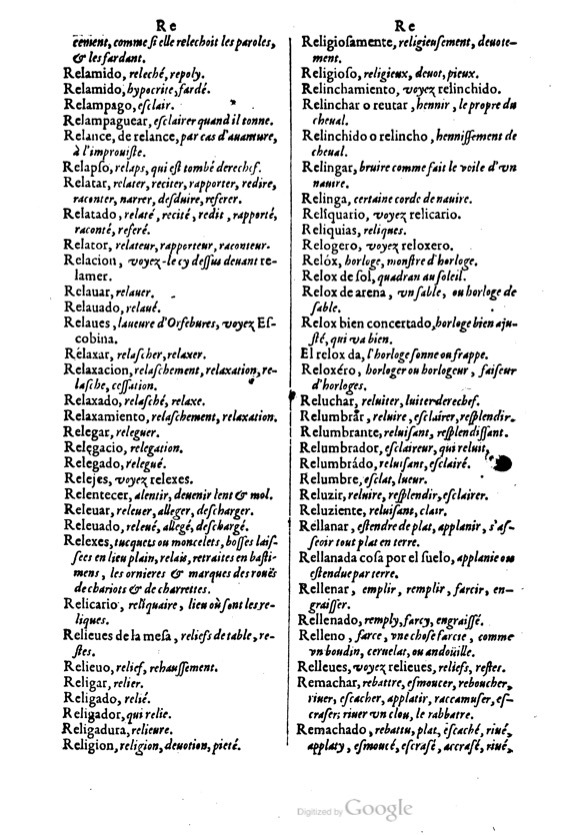 Re
cement, comme ſi elle relechoit les paroles,
& les fardant.
Relamido, releché, repoly.
Relamido, hypocrite, fardé.
Relampago, eſclair.
Relampaguear, eſclairer quand il tonne.
Relance, de relance, par cas d'auamure,
à l'improuiſte.
Relapſo, relaps, qui eſt tombé derechef.
Relatar, relater, reciter, rapporter, redire,
raconter, narrer, deſduire, referer.
Relatado, relaté, recité, redit, rapporté,
raconté, referé.
Relator, relateur, rapporteur, raconteur.
Relacion, voyez-le cy deſſus deuant re-
lamer.
Relauar, relauer.
Relauado, relaué.
Relaues, laueure d'Orfebures, voyez Eſ-
cobina.
Relaxar, relaſcher, relaxer.
Relaxacion, relaſchement, relaxation, re-
laſche, ceſſation.
Relaxado, relaſché, relaxe.
Relaxamiento, relaſchement, relaxation.
Relegar, releguer.
Relegacio, relegation.
Relegado, relegué.
Relejes, voyez relexes.
Relentecer, alentir, deuenir lent & mol.
Releuar, releuer, alleger, deſcharger.
Releuado, releué, allegé, deſchargé.
Relexes, tucquets ou moncelets, boſſes laiſ-
ſees en lieu plain, relais, retraites en baſti-
mens, les ornieres & marques des rouës
de chariots & de charrettes.
Relicario, reliquaire, lieu où ſont les re-
liques.
Relieues de la meſa, reliefs de table, re-
ſtes.
Relieuo, relief, rehauſſement.
Religar, relier.
Religado, relié.
Religador, qui relie.
Religadura, relieure.
Religion, religion, deuotion, pieté.
Re
Religioſamente, religieuſement, deuote-
ment.
Religioſo, religieux, deuot, pieux.
Relinchamiento, voyez relinchido.
Relinchar o reutar, hennir, le propre du
cheual.
Relinchido o relincho, henniſſement de
cheual.
Relingar, bruire comme fait le voile d'vn
nauire.
Relinga, certaine corde de nauire.
Reliquario, voyez relicario.
Reliquias, reliques.
Relogero, voyez reloxero.
Relóx, horloge, monſtre d'horloge.
Relox de ſol, quadran au ſoleil.
Relox de arena, vn ſable, ou horloge de
ſable.
Relox bien concertado, horloge bien aju-
ſté, qui va bien.
El relox da, l'horloge ſonne ou frappe.
Reloxéro, horloger ou horlogeur, faiſeur
d'horloges.
Reluchar, reluiter, luiter derechef.
Relumbrar, reluire, eſclairer, reſplendir.
Relumbrante, reluiſant, reſplendiſſant.
Relumbrador, eſclaireur, qui reluit,
Relumbrádo, reluiſant, eſclairé.
Relumbre, eſclat, lueur.
Reluzir, reluire, reſplendir, eſclairer.
Reluziente, reluiſant, clair.
Rellanar, eſtendre de plat, applanir, s'aſ-
ſeoir tout plat en terre.
Rellanada coſa por el ſuelo, applanie ou
eſtendue par terre.
Rellenar, emplir, remplir, farcir, en-
graiſſer.
Rellenado, remply, farcy, engraiſſé.
Relleno, farce, vne choſe farcie, comme
vn boudin, ceruelat, ou andoüille.
Relleues, voyez relieues, reliefs, reſtes.
Remachar, rebattre, eſmoucer, reboucher,
riuer, eſcacher, applatir, raccamuſer, eſ-
craſer, riuer vn clou, le rabbatre.
Remachado, rebattu, plat, eſcaché, riué,
applaty, eſmoucé, eſcraſé, accraſé, riué,
Digitized by Google